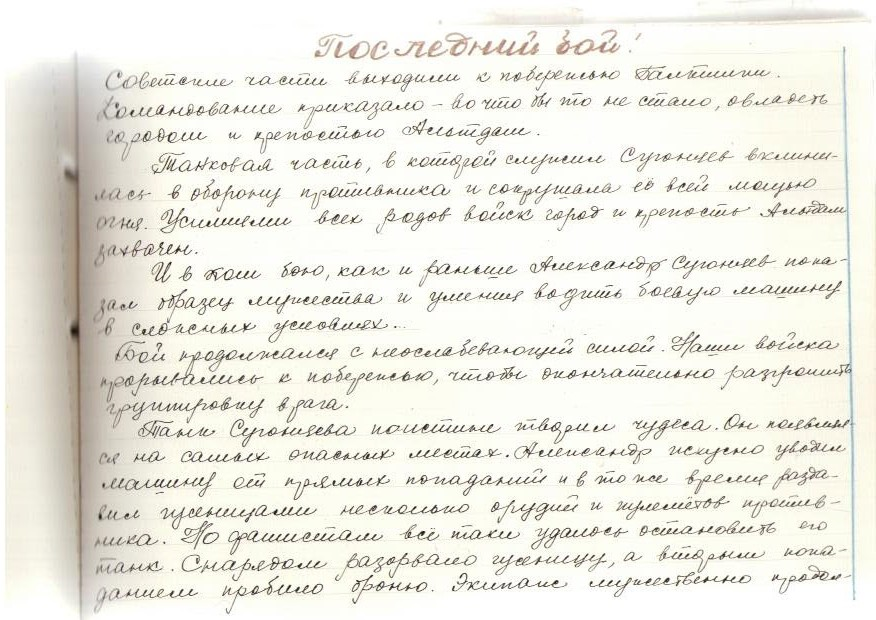 Последний бой!
Советские части выходили к побережью Балтики.
Командование приказало – во что бы то не стало, овладеть
городом и крепостью Альтдам.
Танковая часть, в которой служил Сугонцев вклини-
лась в оборону противника и сокрушала её всей мощью
огня. Усилиями всех родов войск город и крепость Альтдам
захвачен.
И в том бою, как и раньше Александр Сугонцев пока-
зал образец мужества и умения водить боевую машину
в сложных условиях...
Бой продолжался с неослабевающей силой. Наши войска
прорывались к побережью, чтобы окончательно разгромить
группировку врага.
Танк Сугонцева поистине творил чудеса. Он появлял-
ся на самых опасных местах. Александр искусно уводил
машину от прямых попаданий и в то же время разда-
вил гусеницами несколько орудий и пулемётов против-
ника. Но фашистам всё таки удалось остановить его
танк. Снарядом разорвало гусеницу, а вторым попа-
данием пробило броню. Экипаж мужественно продол-